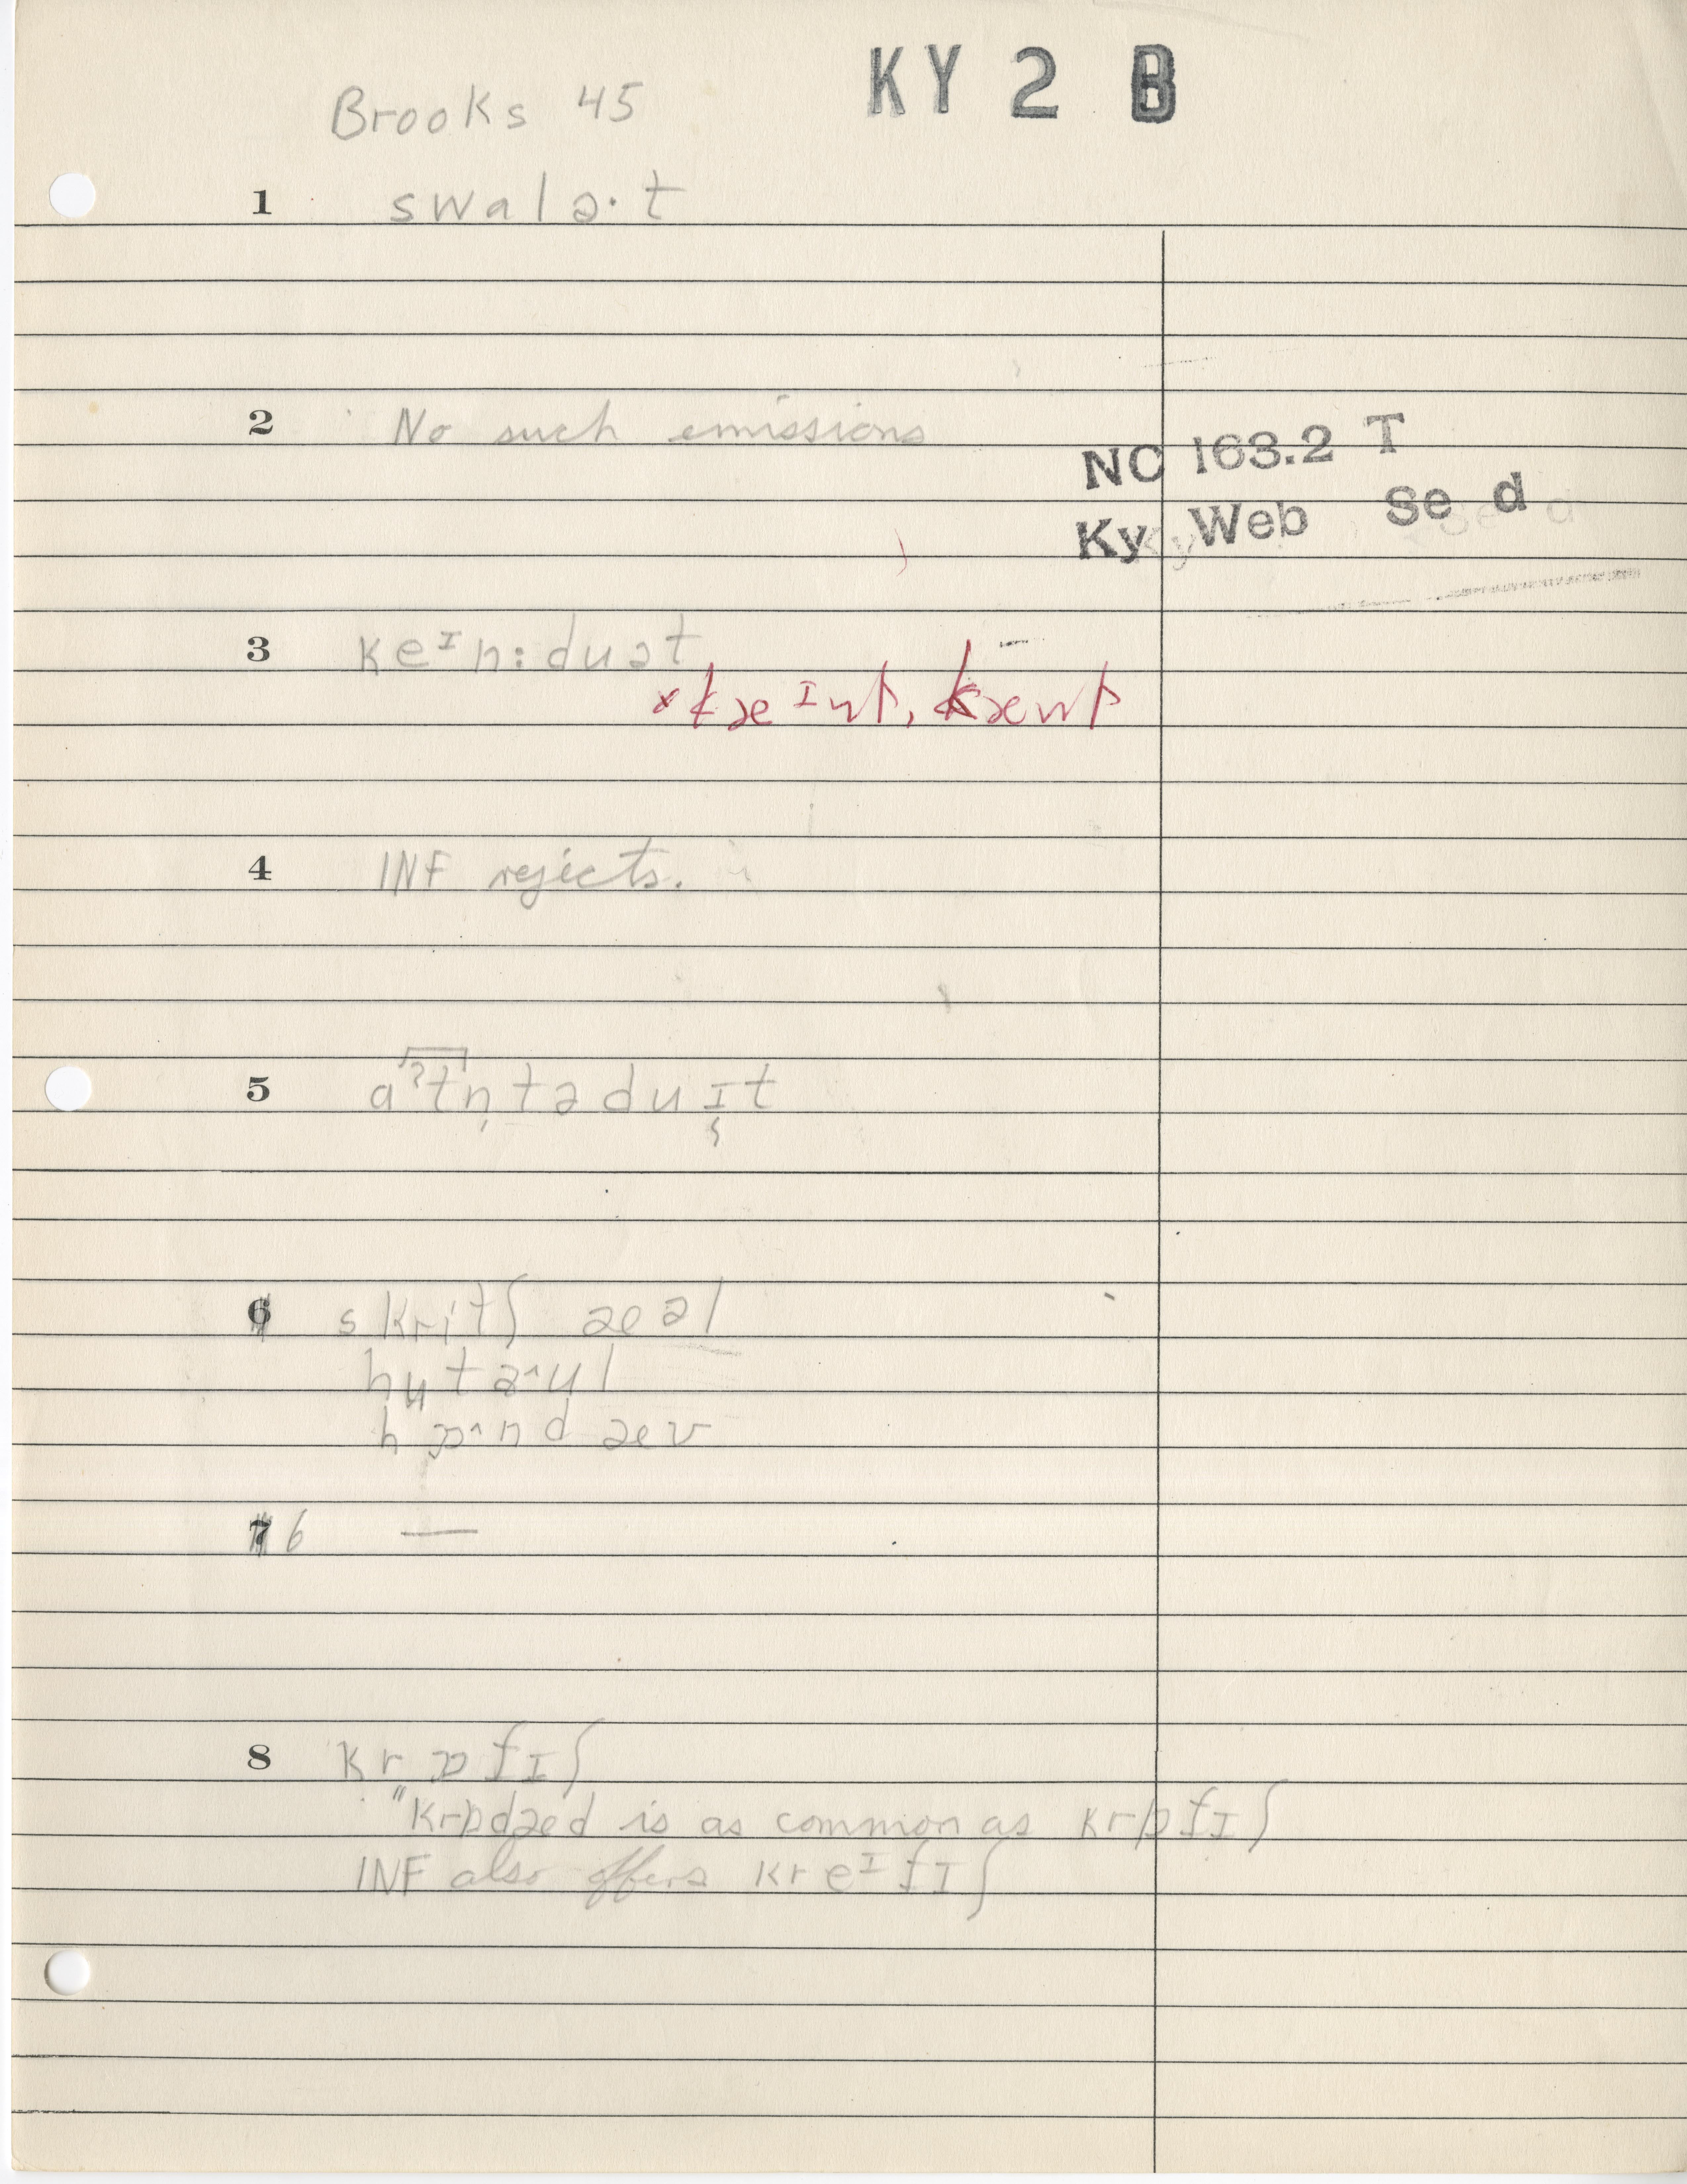 KY 2 B
Brooks 45
1 swalə·t
2 No such emissions
NC 163.2 T
Ky Web Se d
3 keᴵn:duət
4 INF rejects.
5 aˀtn̩təduɪt
6 skritʃ æəl
7 6 —
8 krɒfɪʃ
"krɒdæd is as common as krɒfɪʃ
INF also offers kreᴵfɪʃ